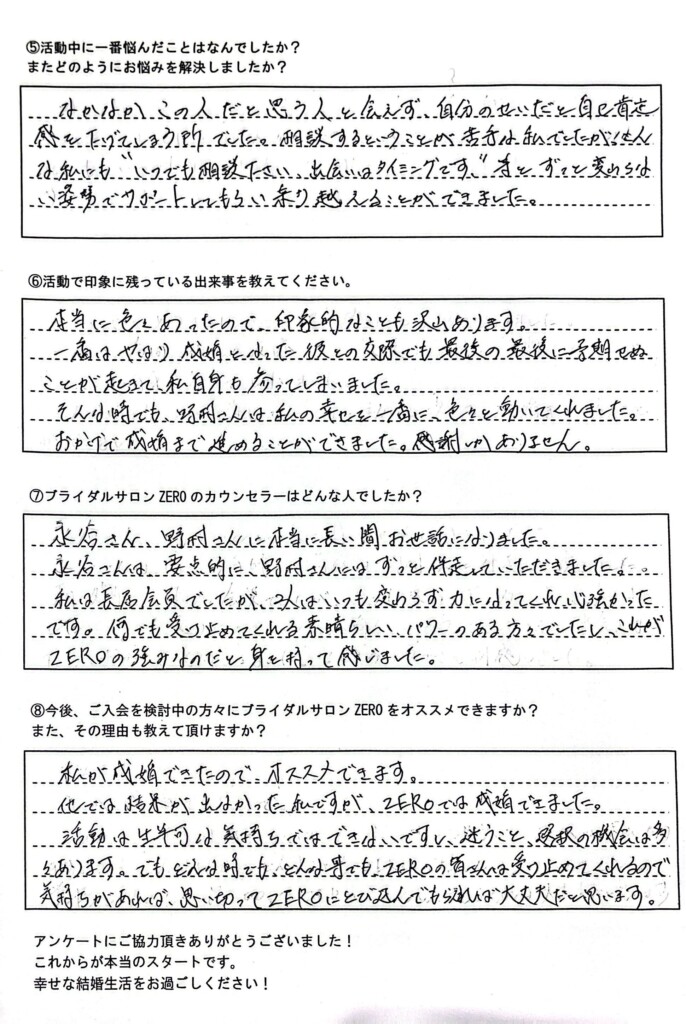 ⑤活動中に一番悩んだことはなんでしたか？
またどのようにお悩みを解決しましたか？
なかなかこの人だと思う人と会えず、自分のせいだと自己肯定
感を下げてしまう所でした。相談するということが苦手な私でしたが、そん
な私にも“いつでも相談下さい、出会いはタイミングです。”等と ずっと変わらな
い姿勢でサポートしてもらい乗り越えることができました。
⑥活動で印象に残っている出来事を教えてください。
本当に色々あったので、印象的なことも沢山あります。
一番はやはり成婚となった彼との交際でも最後の最後に予期せぬ
ことが起きて、私自身も参ってしまいました。
そんな時でも、野村さんは私の幸せを一番に、色々と動いてくれました。
おかげで成婚まで進めることができました。感謝しかありません。
⑦ブライダルサロン ZERO のカウンセラーはどんな人でしたか？
永谷さん、野村さんに本当に長い間お世話になりました。
永谷さんは、要点的に、野村さんにはずっと伴走していただきました。
私は長居会員でしたが、2人はいつも変わらず力になってくれ心強かった
です。何でも受け止めてくれる素晴らしい、パワーのある方々でしたし、これが
ZEROの強みなのだと身を持って感じました。
⑧今後、ご入会を検討中の方々にブライダルサロン ZERO をオススメできますか？
また、その理由も教えて頂けますか？
私が成婚できたので、オススメできます。
他では結果が出なかった私ですが、ZEROでは成婚できました。
活動は生半可な気持ちではできないですし、迷うこと、選択の機会は多
々あります。でもどんな時でも、どんな事でも、ZEROの皆さんは受け止めてくれるので
気持ちがあれば、思い切ってZEROにとび込んでもらえれば大丈夫だと思います。
アンケートにご協力頂きありがとうございました！
これからが本当のスタートです。
幸せな結婚生活をお過ごしください！